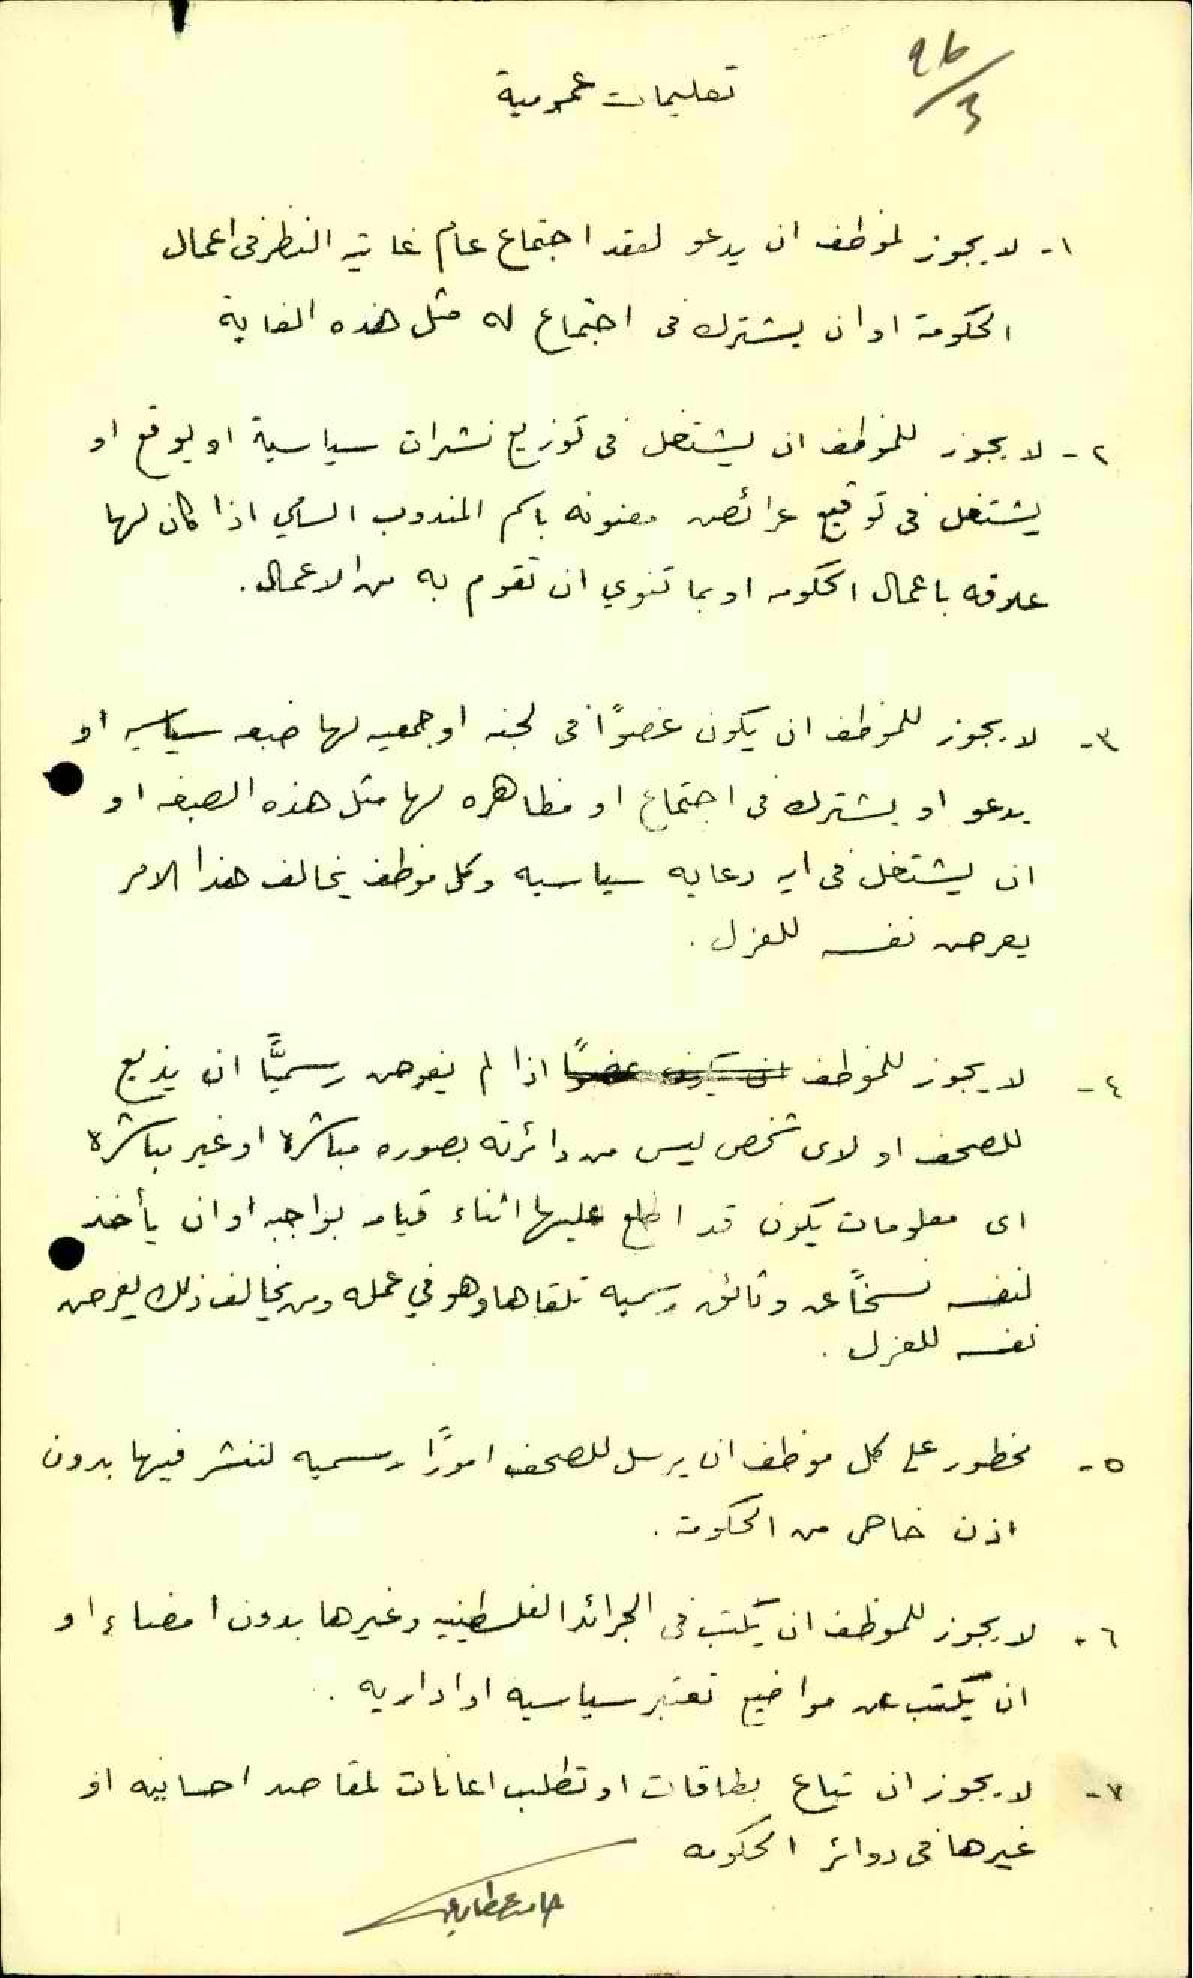 26/3
تعليمات عمومية
١- لا يجوز لموظف ان يدعو لعقد اجتماع عام غايته النظر فى اعمال
الحكومة او ان يشترك فى اجتماع له مثل هذه الغاية
٢- لا يجوز للموظف ان يشتغل فى توزيع نشرات سياسية او يوقع او
يشتغل فى توقيع عرائض معنونه باسم المندوب السامي اذا كان لها
علاقه باعمال الحكومه او بما تنوي ان تقوم به من الاعمال.
٣- لا يجوز للموظف ان يكون عضوًا فى لجنه او جمعيه لها صبغه سياسيه او
يدعو او يشترك فى اجتماع او مظاهره لها مثل هذه الصبغه او
ان يشتغل فى ايه دعايه سياسيه وكل موظف يخالف هذا الامر
يعرض نفسه للعزل.
٤- لا يجوز للموظف ان يكون عضوًا اذا لم يفوض رسميًّا ان يذيع
للصحف او لاى شخص ليس من دائرته بصوره مباشرة او غير مباشرة
اى معلومات يكون قد اطلع عليها اثناء قيامه بواجبه او ان يأخذ
لنفسه نسخًا عن وثائق رسميه تلقاها وهو في عمله ومن يخالف ذلك يعرض
نفسه للعزل.
٥- محظور على كل موظف ان يرسل للصحف امورًا رسميه لتنشر فيها بدون
اذن خاص من الحكومة.
٦- لا يجوز للموظف ان يكتب فى الجرائد الفلسطينيه وغيرها بدون امضاء او
ان يكتب عن مواضيع تعتبر سياسيه او اداريه.
٧- لا يجوز ان تباع بطاقات او تطلب اعانات لمقاصد احسانيه او
غيرها فى دوائر الحكومه